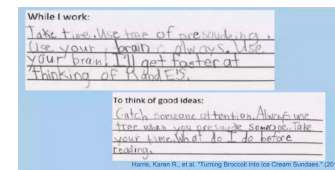 While I work:
Take time. Use tree of presauding.
Use your brain is always. Use
your brain. I'll get faster at
thinking of R and E's.
To think of good ideas:
Catch somzone attention. Always use
tree when you presaude someone. Take
your time. What do I do before
reading.
Harris, Karen R., et al. "Turning Broccoli Into Ice Cream Sundaes." (20